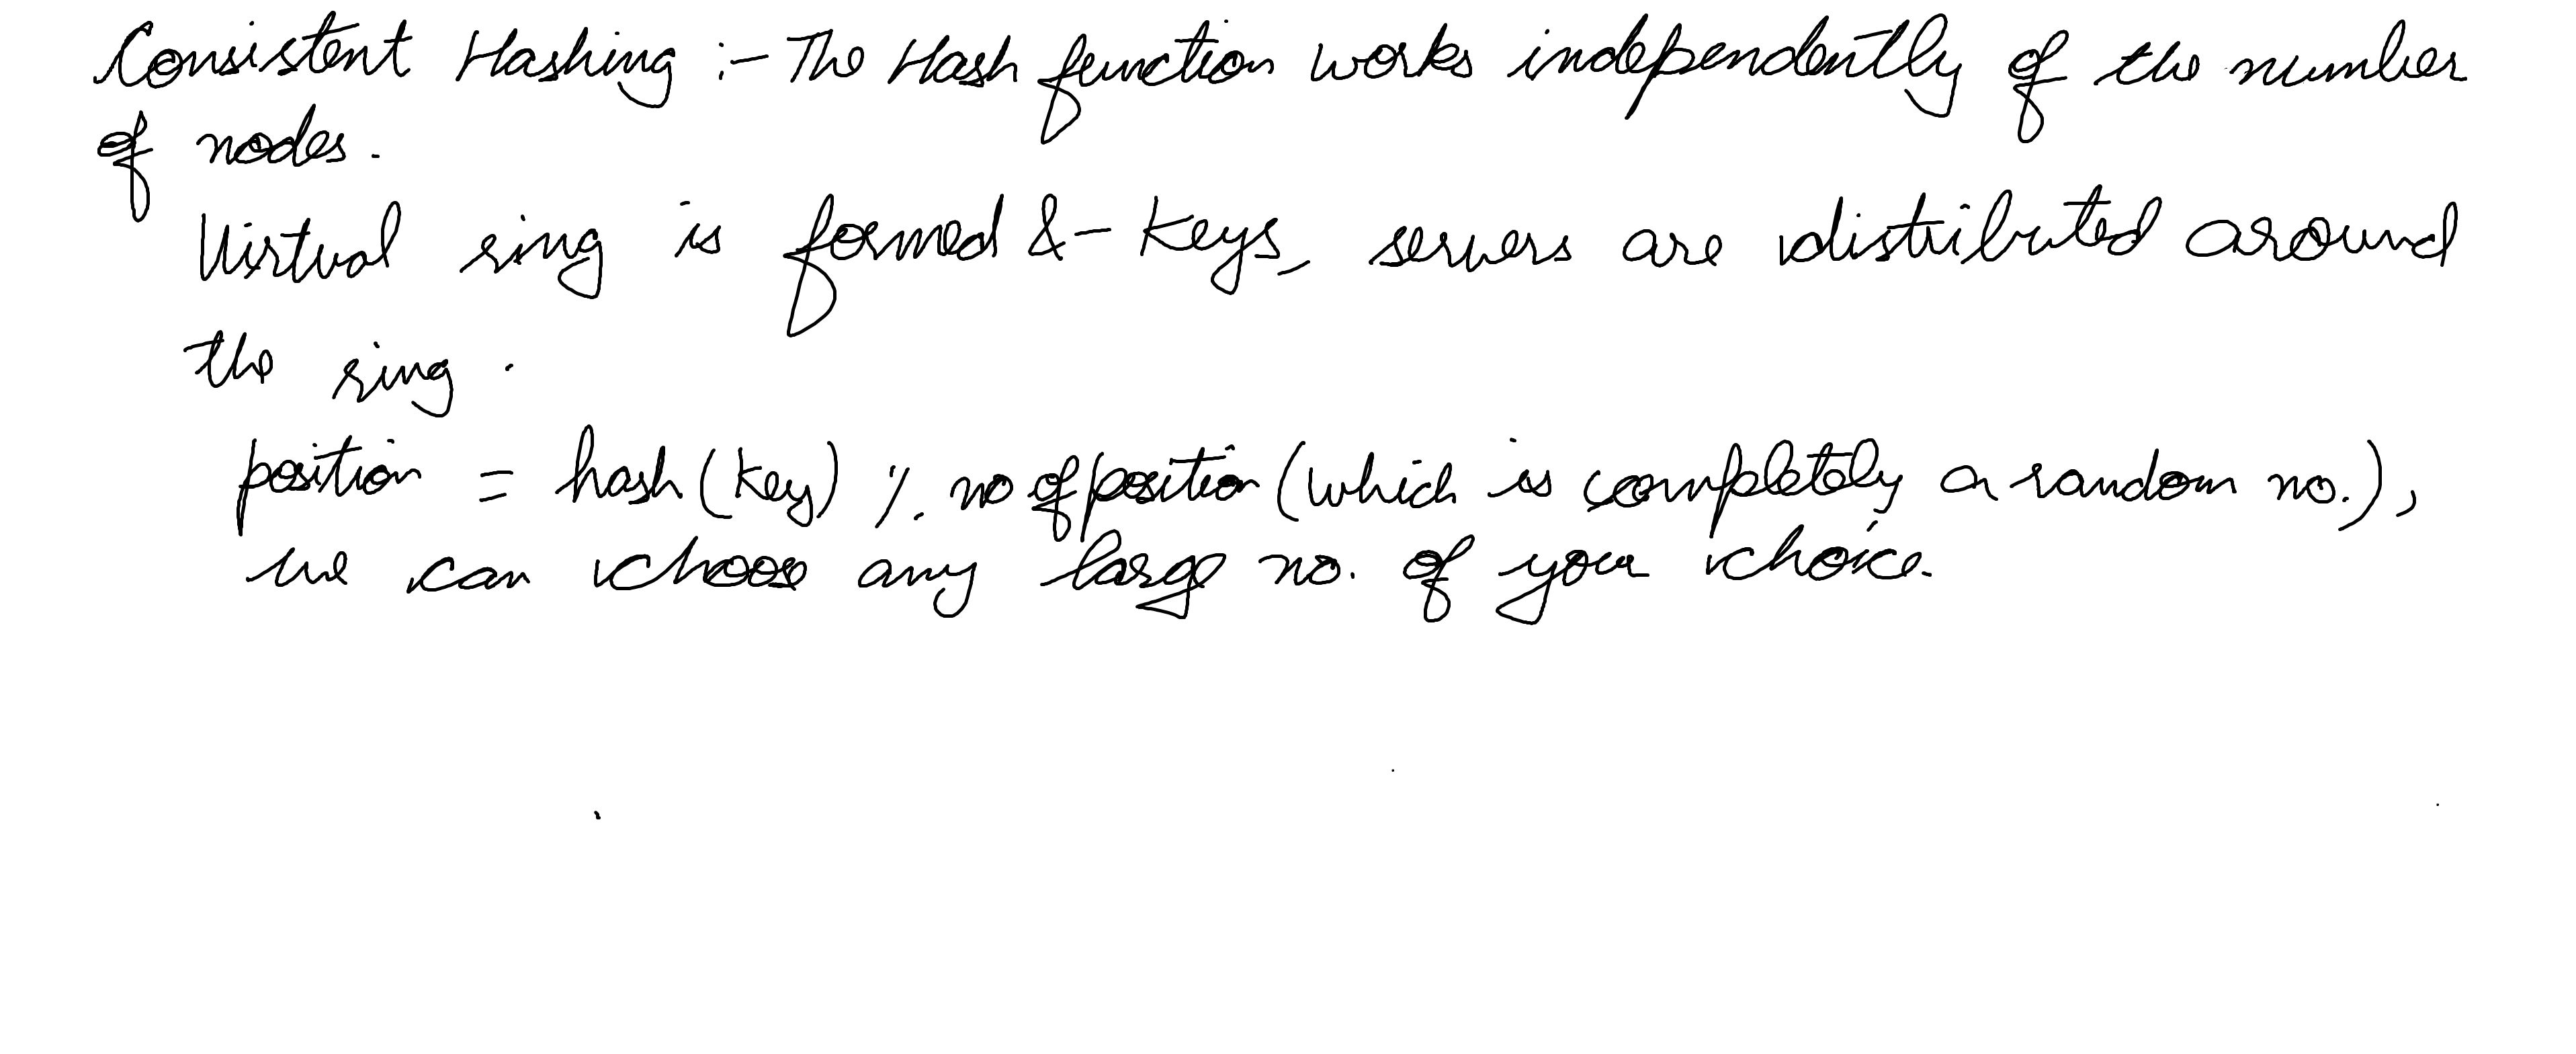 Consistent Hashing :- The Hash function works independently of the number
of nodes.
Virtual ring is formed &- Keys, servers are distributed around
the ring.
position = hash(key) % no of position (which is completely a random no.),
we can choose any large no. of your choice.